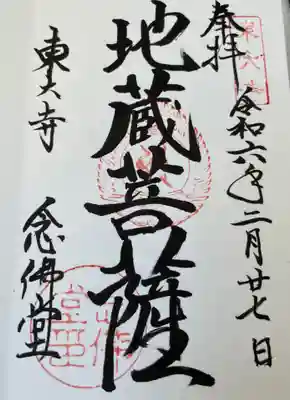 奉拝
令和六年二月廿七日
地蔵菩薩
東大寺
念佛堂